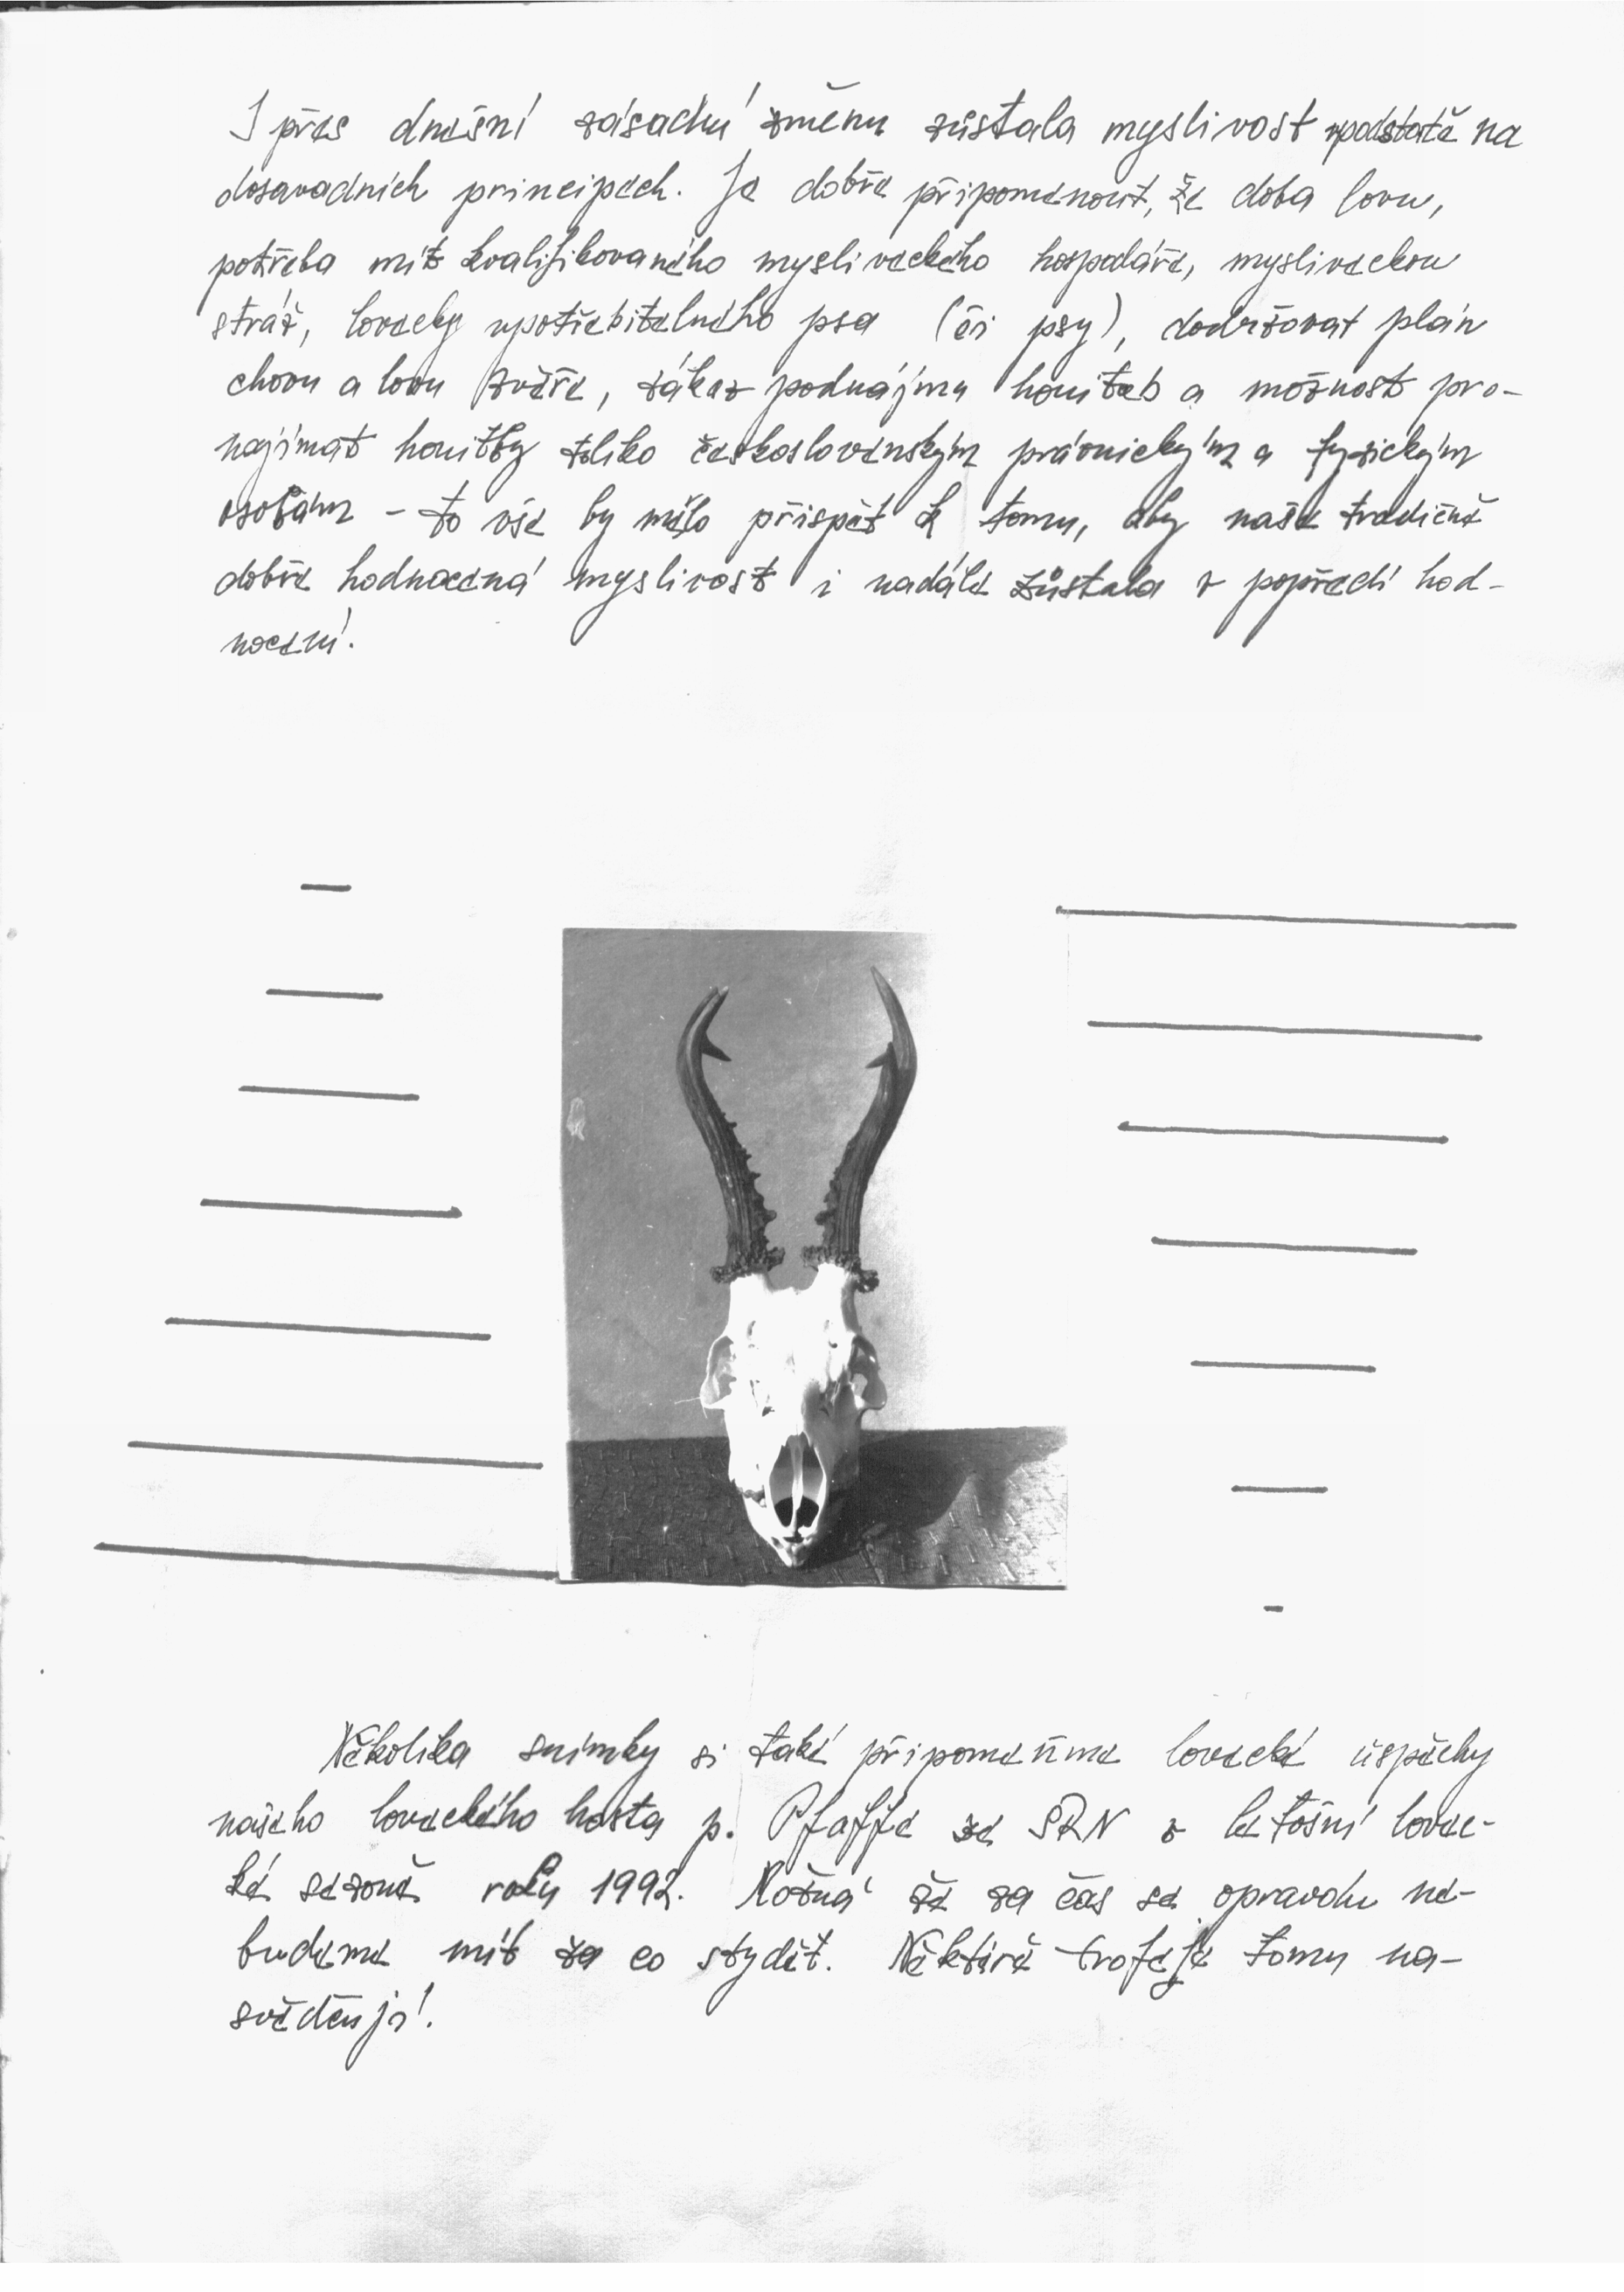 I přes dnešní zásadní změnu zůstala myslivost v podstatě na
dosavadních principech. Je dobře připomenout, že doba lovu,
potřeba mít kvalifikovaného mysliveckého hospodáře, mysliveckou
stráž, lovecky upotřebitelného psa (či psy), dodržovat plán
chovu a lovu zvěře, zákaz podnájmu honiteb a možnost pro-
najímat honitby toliko československým právnickým a fyzickým
osobám - to vše by mělo přispět k tomu, aby naše tradičně
dobře hodnocená myslivost i nadále zůstala v popředí hod-
nocení.
Několika snímky si také připomeňme lovecké úspěchy
našeho loveckého hosta p. Pfaffe ze SRN v letošní lovec-
ké sezoně roku 1992. Možná že za čas se opravdu ne-
budeme mít za co stydět. Některé trofeje tomu na-
svědčují!